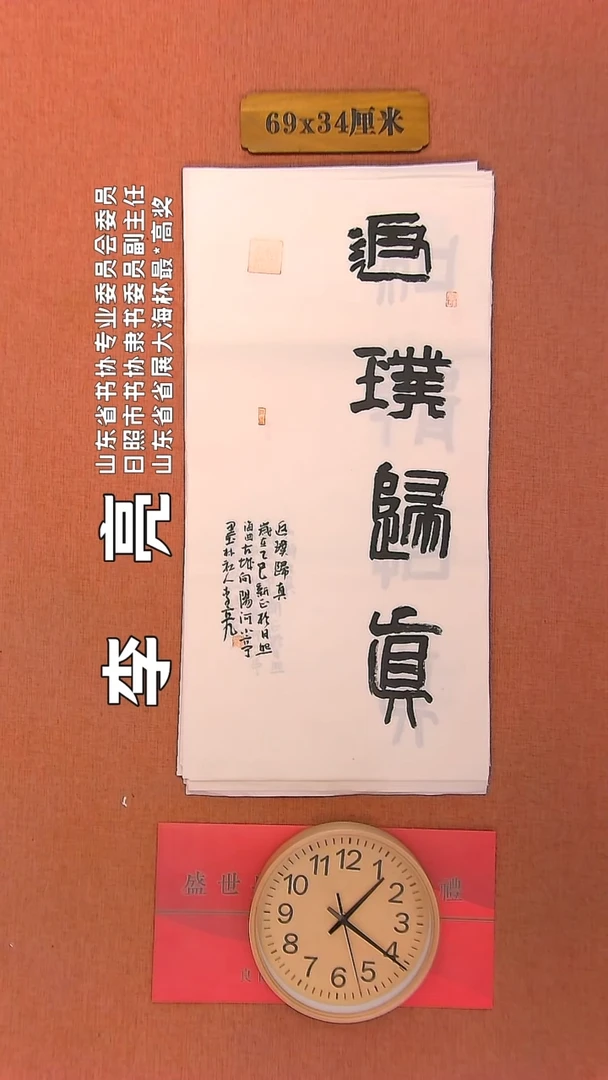 69x34厘米
返
璞
歸
真
返璞歸真
歲在乙巳新正於日照
山东省书协专业委员会委员
日照市书协隶书委员副主任
山东省省展大海杯最*高奖
李亮
盛世
禮
12
1
2
3
4
5
6
7
8
9
10
11